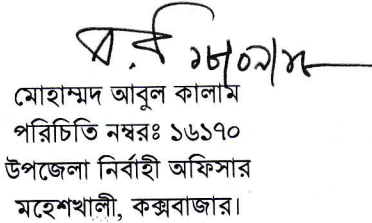 মোহাম্মদ আবুল কালাম
পরিচিতি নম্বরঃ ১৬১৭০
উপজেলা নির্বাহী অফিসার
মহেশখালী, কক্সবাজার।